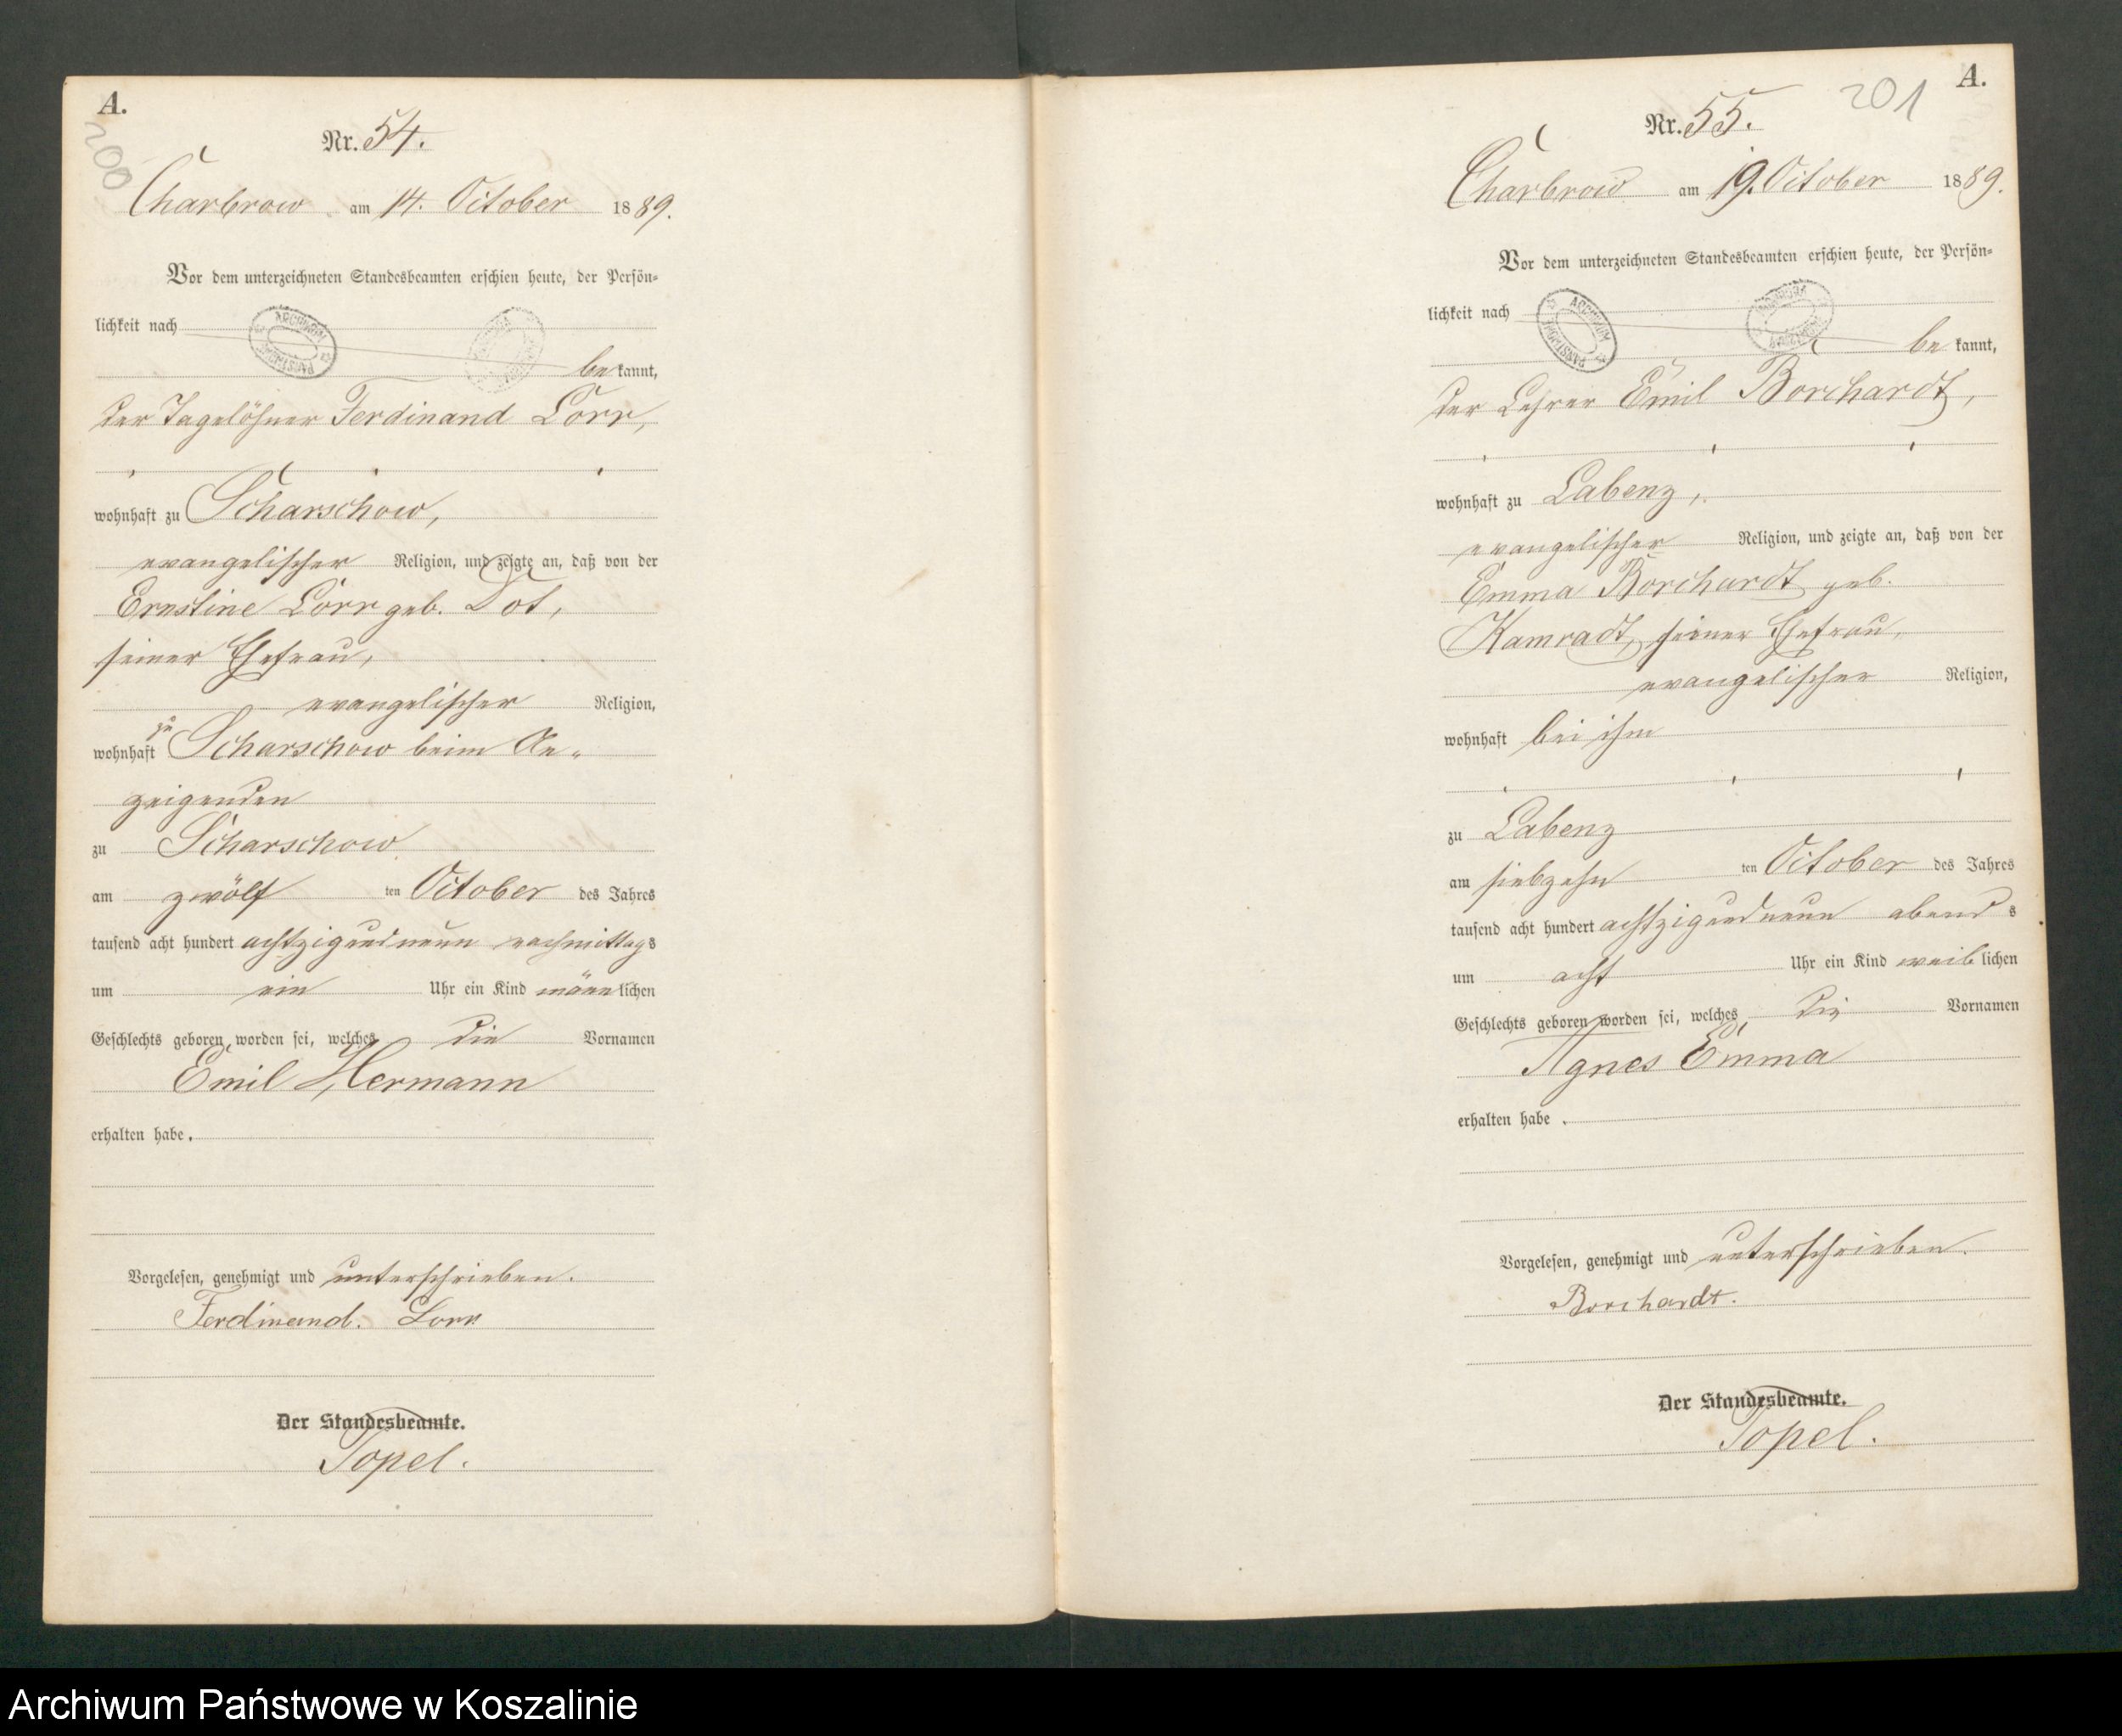 A.
200
Nr. 54.
Charbrow am 14. October 1889.
Vor dem unterzeichneten Standesbeamten erschien heute, der Persön=
lichkeit nach
ARCHIWUM PAŃSTWOWE
be kannt,
der Tagelöhner Ferdinand Lorr,
wohnhaft zu Scharschow,
evangelischer Religion, und zeigte an, daß von der
Ernestine Lorr geb. Tot,
seiner Ehefrau,
evangelischer Religion,
zu
wohnhaft Scharschow beim An-
zeigenden
zu Scharschow
am zwölf ten October des Jahres
tausend acht hundert achtzigundneun nachmittags
um ein Uhr ein Kind männlichen
Geschlechts geboren worden sei, welches die Vornamen
Emil Hermann
erhalten habe.
Vorgelesen, genehmigt und unterschrieben.
Ferdinand. Lorr
Der Standesbeamte.
Topel.
A.
201
Nr. 55.
Charbrow am 19. October 1889.
Vor dem unterzeichneten Standesbeamten erschien heute, der Persön=
lichkeit nach
ARCHIWUM PAŃSTWOWE
be kannt,
der Lehrer Emil Borchardt,
wohnhaft zu Labenz,
evangelischer Religion, und zeigte an, daß von der
Emma Borchardt geb.
Kamradt, seiner Ehefrau,
evangelischer Religion,
wohnhaft bei ihm
zu Labenz
am siebzehn ten October des Jahres
tausend acht hundert achtzigundneun abends
um acht Uhr ein Kind weiblichen
Geschlechts geboren worden sei, welches die Vornamen
Agnes Emma
erhalten habe.
Vorgelesen, genehmigt und unterschrieben.
Borchardt.
Der Standesbeamte.
Topel.
Archiwum Państwowe w Koszalinie